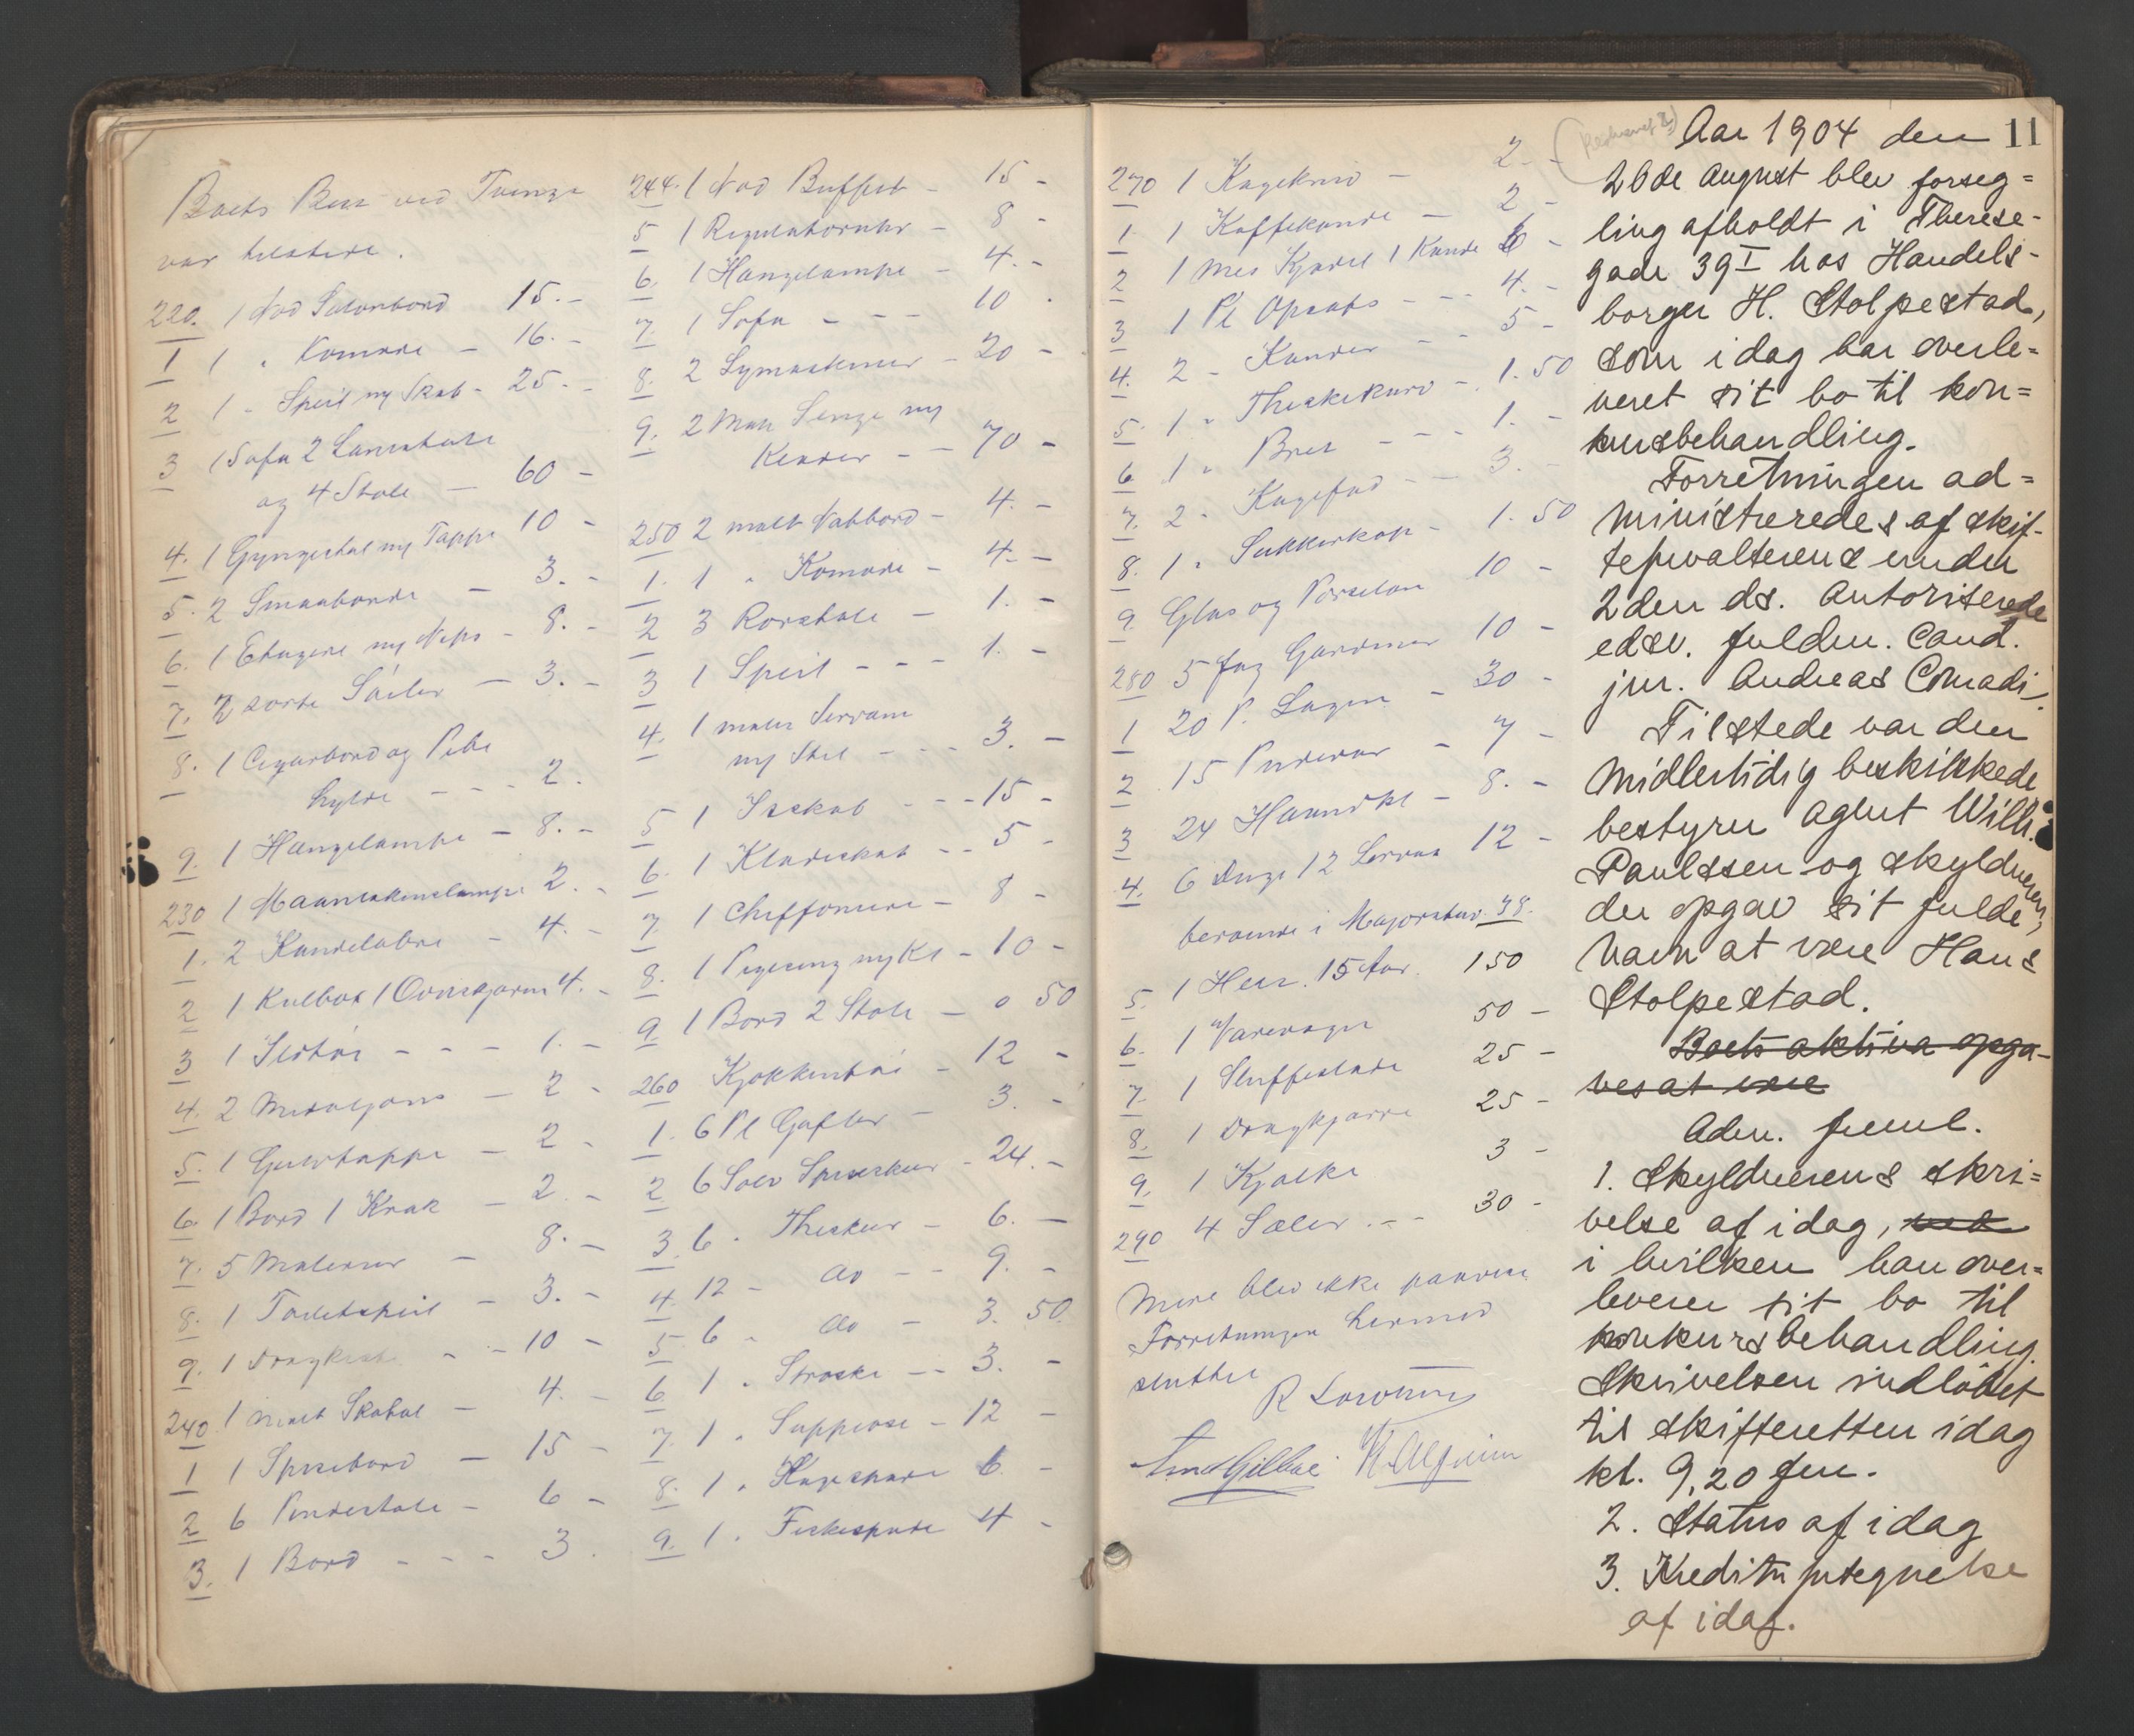 Boets Best ved Tvenge
var tilstede.
220. 1 Nød Salonbord 15.-
1 1 " Komode - 16.-
2 1 - Speil og Skab - 25.-
3 1 Sofa 2 Lænestole
og 4 Stole - 60 -
4. 1 Gyngestol og Tæppe 10 -
5. 2 Smaaborde - 3.-
6. 1 Etagere og Nips - 8.-
7. 2 sorte Söiler - 3.-
8. 1 Cigarbord og Pibe
hylde - - - 2.
9. 1 Hængelampe - 8.-
230 1 Maaneskinslampe 2.-
1. 2 Kandelabre - 4.-
2 1 Kulbox 1 Ovnskjærm 4.-
3 1 Ildtöi - - - 1.-
4. 2 Medaljons - 2 -
5. 1 Gulvtæppe - 2 -
6. 1 Bord 1 Krak - 2.-
7. 5 Malerier - 8.-
8. 1 Toiletspeil - 3.-
9. 1 Dragkiste - - 10 -
240 1 malt Skatol - 4.-
1 1 Spisebord - 15 -
2 6 Pindestole - 6 -
3. 1 Bord - - - 3.
244. 1 Nød Buffet - 15 -
5 1 Regulatoruhr - 8 -
6. 1 Hængelampe - 4.-
7. 1 Sofa - - - 10 .
8. 2 Symaskiner - 20 -
9. 2 Mah Senge og
Klæder - - 70 -
250 2 malt Natbord - 4.-
1. 1 " Komode - 4.-
2 3 Rørstole - 1.-
3 1 Speil - - - 1.-
4. 1 malet Servant
og Stel - - - 3.-
5 1 Isskab - - - 15 -
6. 1 Klædeskab - - 5 -
7. 1 Cheffoniere - 8 -
8. 1 Pigeseng og Kl - 10 -
9. 1 Bord 2 Stole - 0 50
260 Kjøkkentöi - 12 -
1. 6 Pl Gafler - 3.-
2 6 Sølv Spiseskeer - 24.-
3. 6 . Theskeer - 6.-
4. 12 - do - - 9.-
5 6 - do - 3. 50
6 1 . Strøske - - 3.-
7. 1 . Suppeøse - 12 -
8. 1 . Kagespade 6 -
9. 1 . Fiskespade 4 -
270 1 Kagekniv - 2.-
1. 1 Kaffekande - 2 -
2 1 Mes Kjedel 1 Kande 6 -
3 1 Pl Opsats - - - 4.-
4. 2 - Kander - - 5 -
5. 1 " Theskekurv - 1.50
6 1 " Bret - - - 1.-
7. 2 - Kagefad - - 3.-
8. 1 " Sukkerkop - 1.50
9 Glas og Porselæn 10 -
280 5 Fag Gardiner 10 -
1 20 P. Lagen - 30 -
2 15 Pudevar - 7 -
3 24 Haandkl - 8.-
4. 6 Duge 12 Serviet 12 -
beroende i Majorstuv. 38.
5. 1 Hest. 15 Aar. 150
6. 1 Varevogn 50 -
7. 1 Sluffeslæde 25 -
8. 1 Dragkjærre 25 -
9. 1 Kjælke 3 -
290 4 Sæler - - 30 -
Mere blev ikke paavist
Forretningen hermed
sluttet
11
Aar 1904 den
26de august blev forseg=
ling afholdt i Therese-
gade 39 I hos Handels-
borger H. Stolpestad,
som idag har overle=
veret sit bo til kon=
kursbehandling.
Forretningen ad=
ministreredes af skif-
teforvalterens under
2den ds. autoriserede
edsv. fuldm. Cand.
jur. Andreas Conradi.
Tilstede var den
midlertidig beskikkede
bestyrer agent Wilh.
Paulssen og skyldneren,
der opgav sit fulde
navn at være Hans
Stolpestad.
Boets aktiva opga-
ves at være
Adm. freml.
1. Skyldnerens skri=
velse af idag, ved
i hvilken han over=
leverer sit bo til
konkursbehandling.
Skrivelsen indløbet
til skifteretten idag
kl. 9,20 fm.
2. Status af idag
3. Kreditorfortegnelse
af idag.